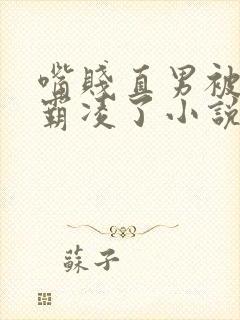 嘴賤直男被
霸凌了小說
蘇子